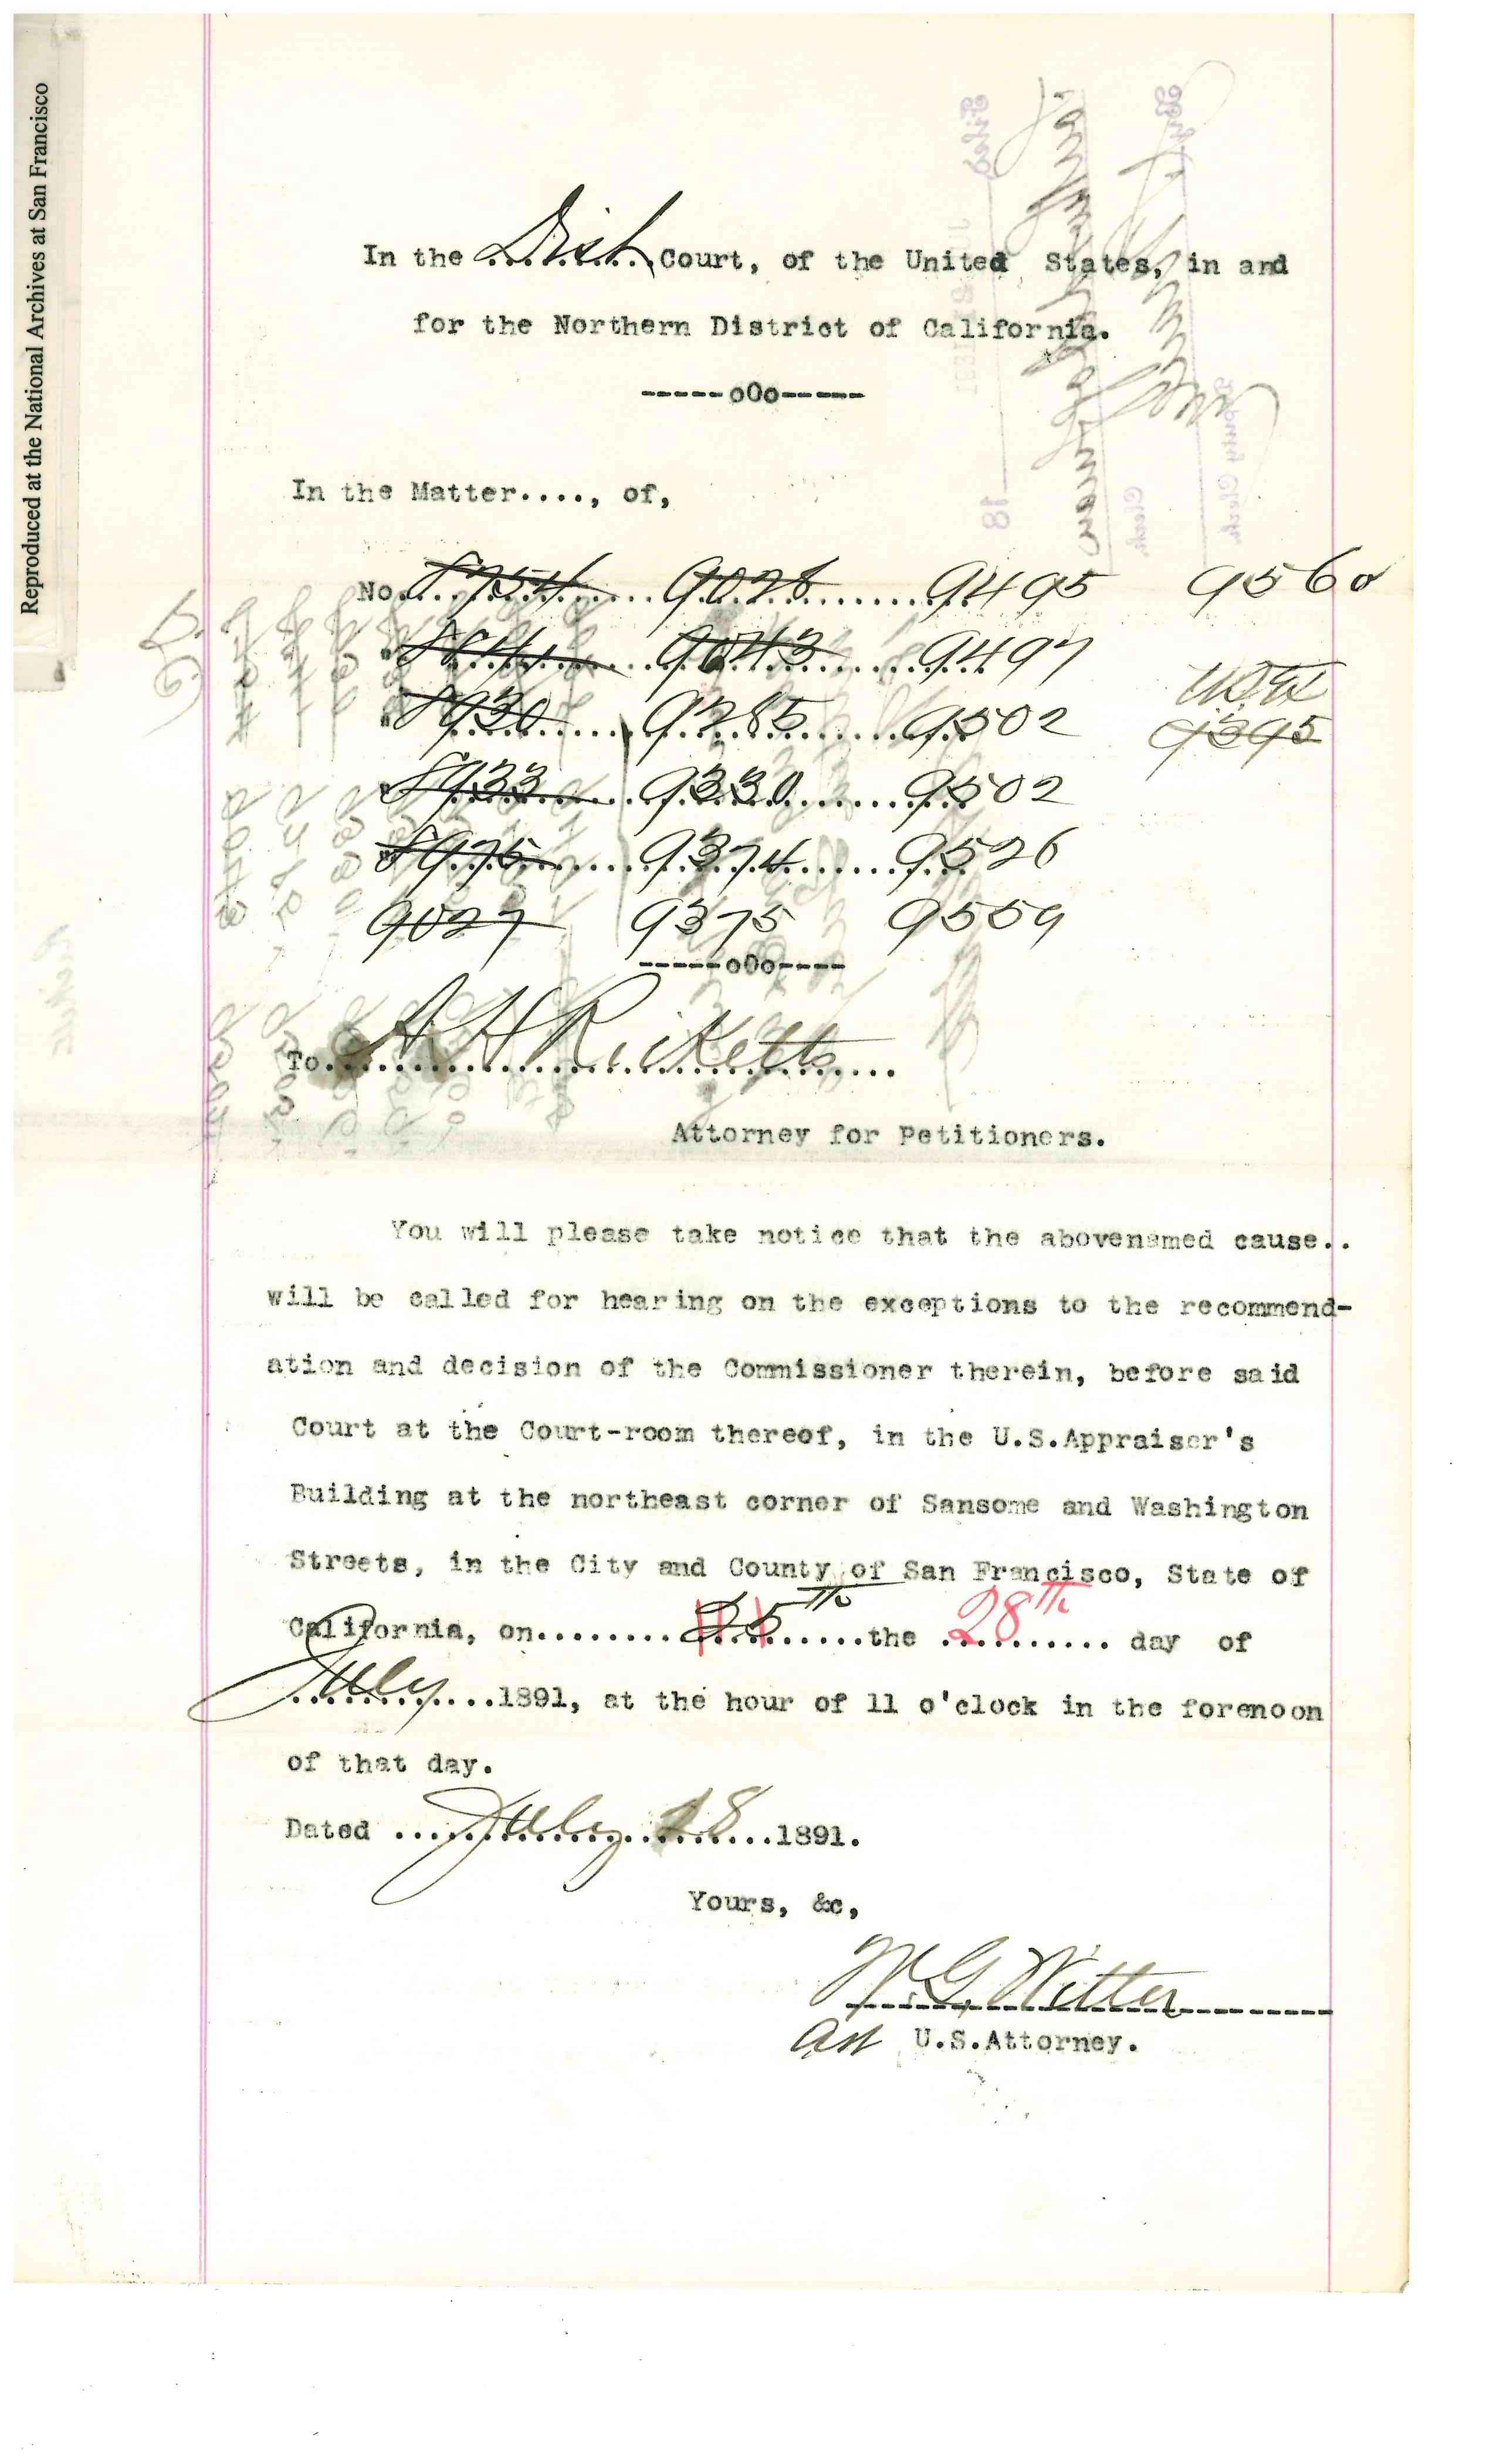 Reproduced at the National Archives at San Francisco
In the Dist. Court, of the United States, in and
for the Northern District of California.
------oOo------
In the Matter...., of,
No. 8754 9028 9495 9560
9043 9497
8930 9285 9502
9395
8933 9330 9502
8975 9374 9526
9027 9375 9559
------oOo-----
To A H Ricketts
Attorney for Petitioners.
You will please take notice that the abovenamed cause..
will be called for hearing on the exceptions to the recommend-
ation and decision of the Commissioner therein, before said
Court at the Court-room thereof, in the U.S.Appraiser's
Building at the northeast corner of Sansome and Washington
Streets, in the City and County of San Francisco, State of
California, on......... 25th .......the 28th day of
July ....1891, at the hour of 11 o'clock in the forenoon
of that day.
Dated July 18 1891.
Yours, &c,
W. G. Witter
Asst U.S.Attorney.